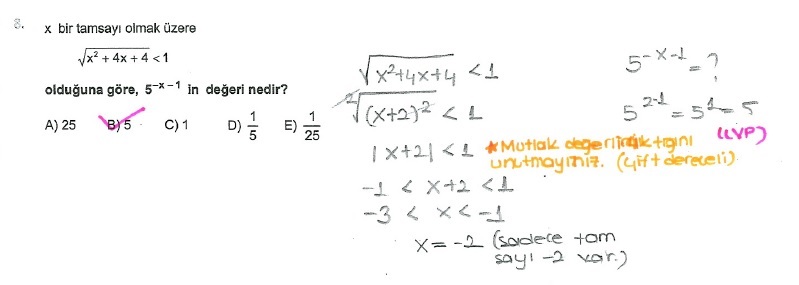 8. x bir tamsayı olmak üzere
√x² + 4x + 4 < 1
olduğuna göre, 5^-x-1 in değeri nedir?
A) 25 B) 5 C) 1 D) 1/5 E) 1/25
√x²+4x+4 < 1
²√(x+2)² < 1
|x+2| < 1
-1 < x+2 < 1
-3 < x < -1
x = -2 (sadece tam
sayı -2 var.)
* Mutlak değerlilik
unutmayınız. (çift dereceli)
5^-x-1 = ?
5^2-1 = 5^1 = 5
(CVP)